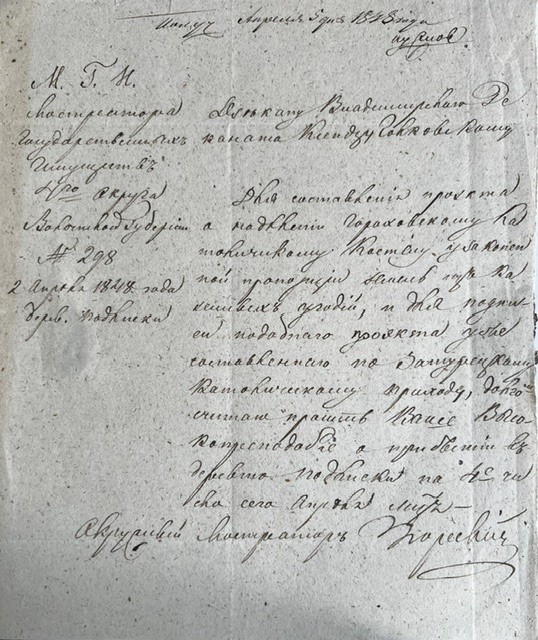 Получ. Апреля 5 дня 1848 года
М. Г. И.
Люстратора
Государственныхъ
Имуществъ
4го округа
Волынской Губерніи
№ 298
2 Апреля 1848 года
дерев. Подбиски
Декану Владимирскаго Де
каната Ксендзу
Для составленія проэкта
о надѣлѣ Гораховскому Ка
толическому Костелу узаконен
ной пропорціи земель изъ ка
зенныхъ угодій, и для подпи
си подобнаго проэкта уже
составленнаго по Затурецкому
Католическому приходу, долгомъ
считаю просить Ваше Высо
копреподобіе о прибытіи въ
деревню на 4е чи
сло сего Апреля
Окружный Люстраторъ